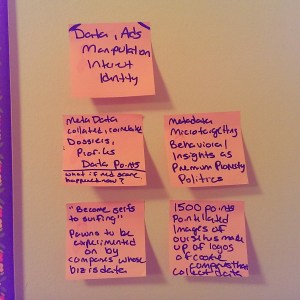 Data, Ads
Manipulation
Interest
Identity
Meta Data
collated, correlated
Dossiers,
Profiles
Data Points
what if red scare
happened now?
metadata
Microtargetting
Behavioral
Insights as
Premium Property
Politics
"Become serfs
to surfing"
Pawns to be
experimented
on by
companies whose
biz is data
1500 points
Pointillated
Images of
ourselves make
up of logos
of
companies that
collect data